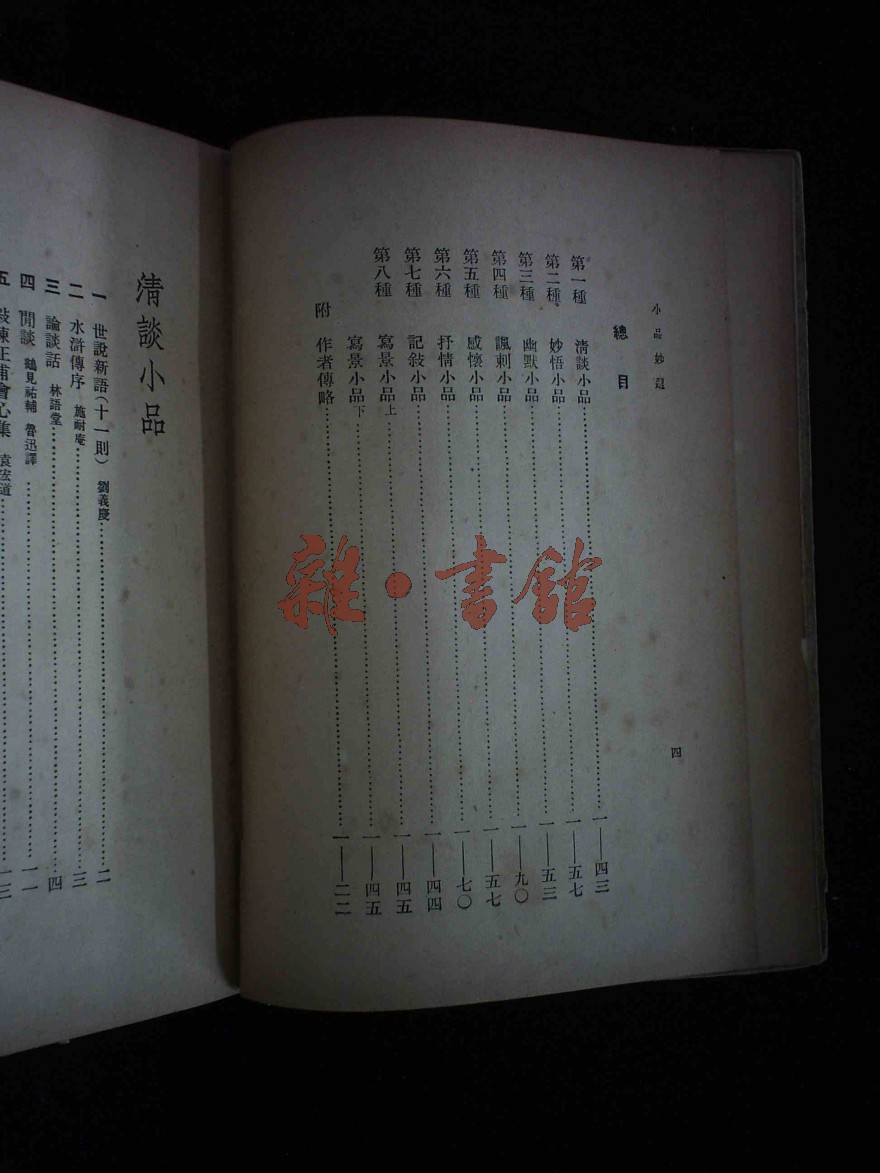 小品妙選
總目
第一種 清談小品 一——四三
第二種 妙悟小品 一——五七
第三種 幽默小品 一——五三
第四種 諷刺小品 一——九〇
第五種 感懷小品 一——五七
第六種 抒情小品 一——七〇
第七種 記敍小品 一——四四
第八種 寫景小品上 一——四五
寫景小品下 一——四五
附 作者傳略 一——二二
四
雜·書館
清談小品
一 世說新語（十一則） 劉義慶 二
二 水滸傳序 施耐庵 三
三 論談話 林語堂 四
四 閒談 鶴見祐輔 魯迅譯 一一
五 敍陳正甫會心集 袁宏道 一三